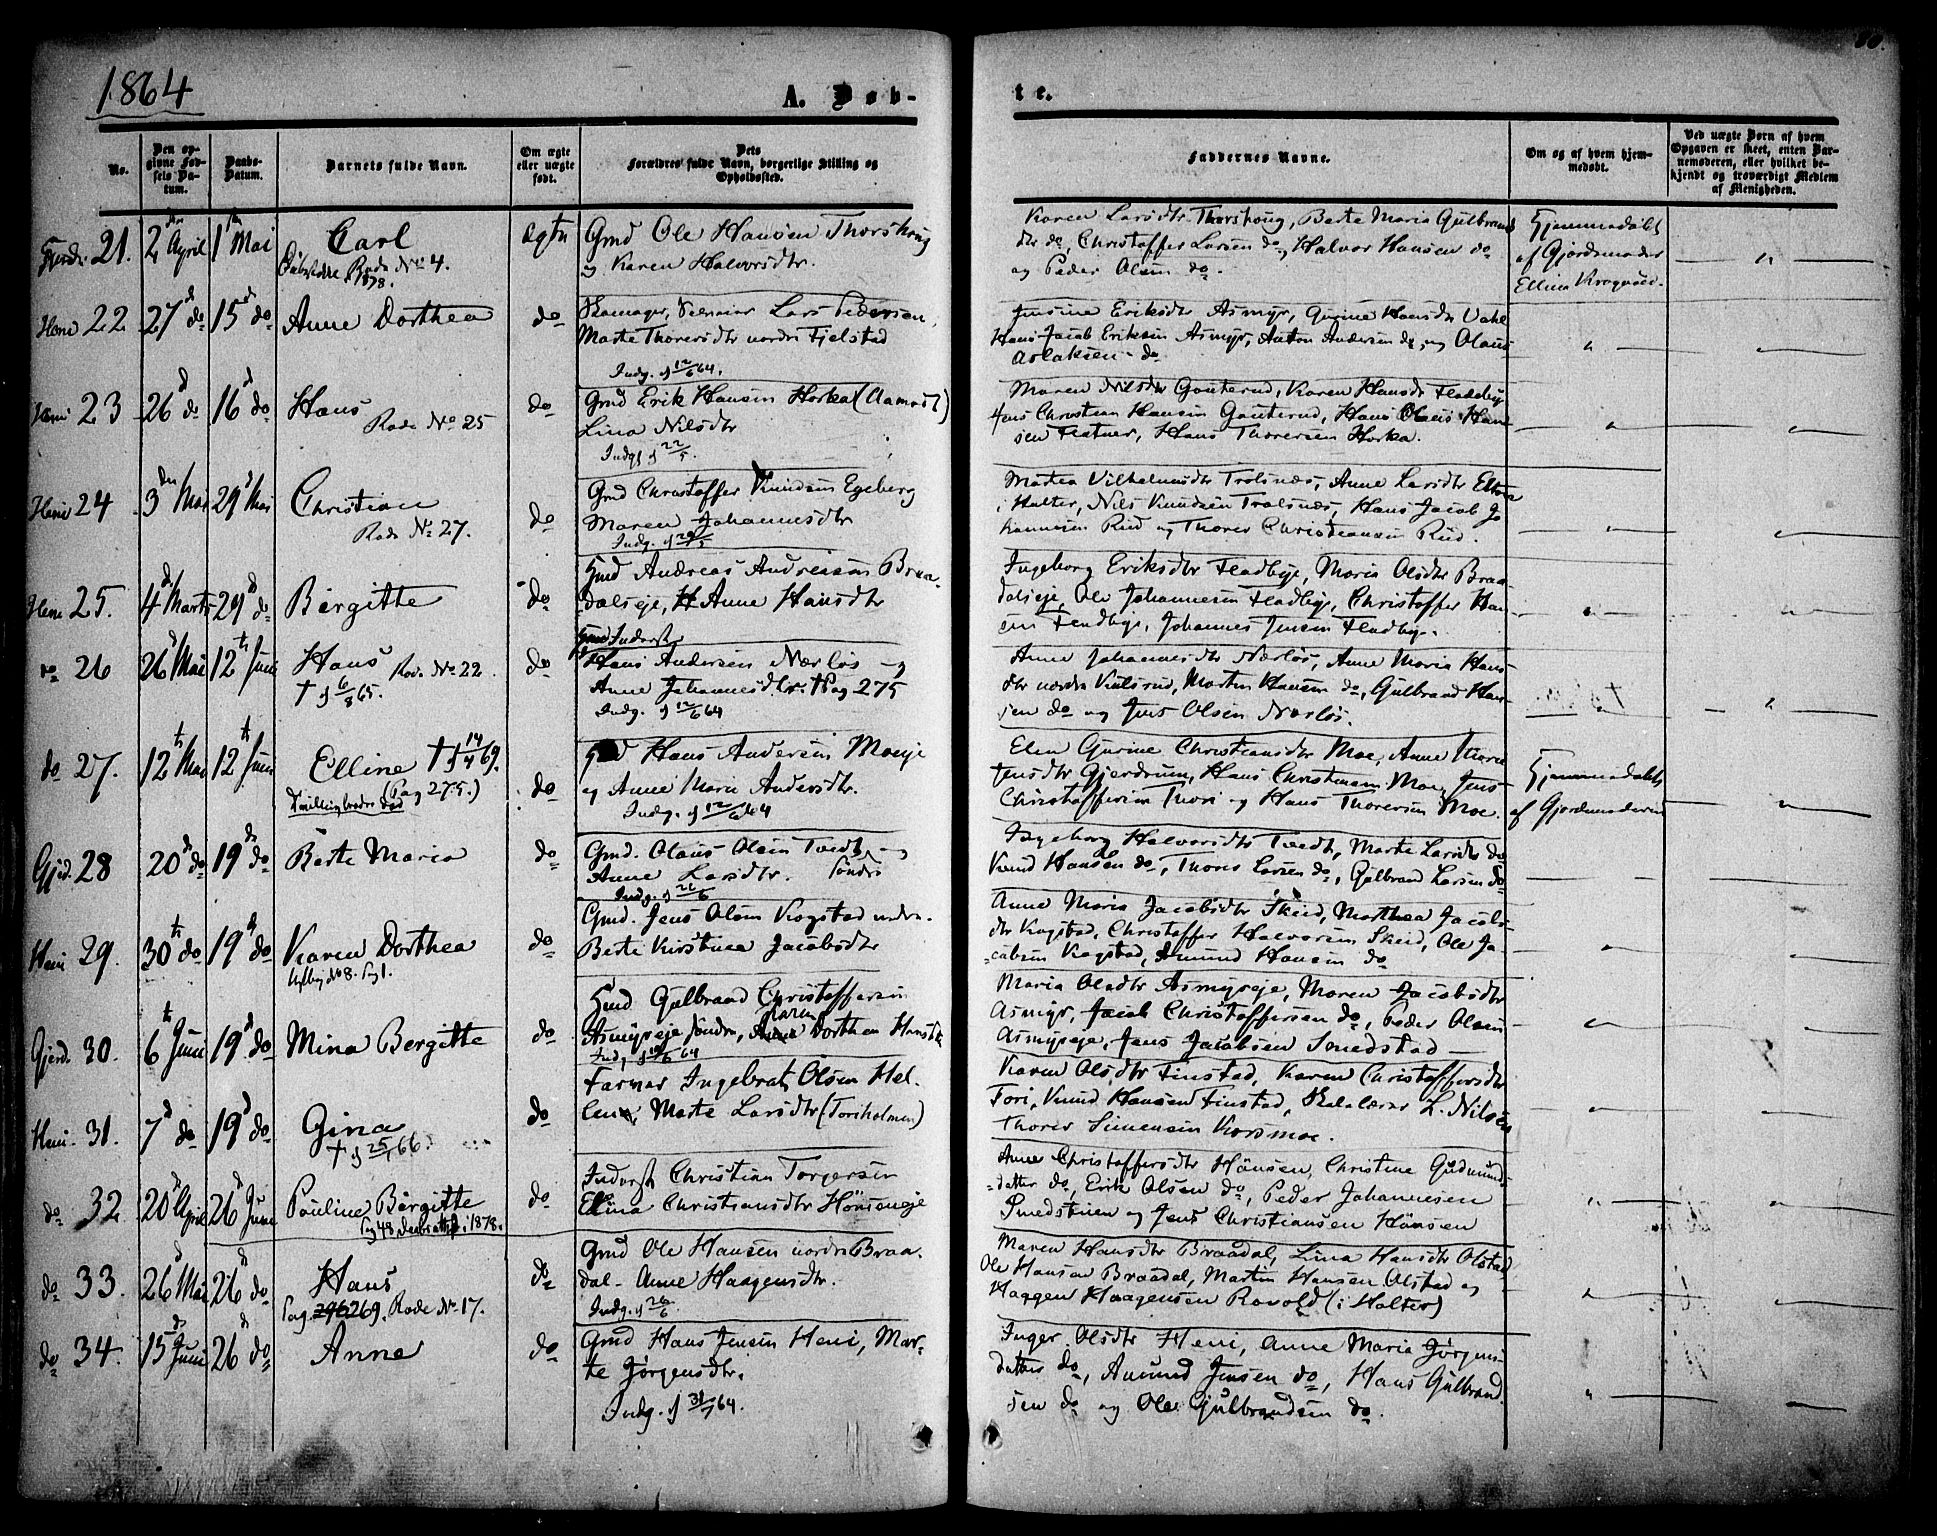 1864
A. Døb-
te.
No.
Den op-
givne Fød-
sels Da-
tum.
Daabs-
Datum.
Barnets fulde Navn.
Om ægte
eller uægte
født.
Dets
Forældres fulde Navn, borgerlige Stilling og
Opholdssted.
Faddernes Navne.
Om og af hvem hjem-
medøbt.
Ved uægte Børn af hvem
Opgaven er skeet, enten Bar-
nemoderen, eller hvilket be-
kjendt og troværdigt Medlem
af Menigheden.
21. 2 April 1 Mai Carl
Rode No 4.
1878.
Ægte
Gmd Ole Hansen Thorshoug
og Karen Halvorsdtr.
Karen Larsdtr Thorshoug, Berte Maria Gulbrands
dtr do, Christoffer Larsen do, Halvor Hansen do
og Peder Olsen do.
Hjemmedøbt
af Gjordemoder
Elline
Heni 22 27 do 15 do Anne Dorthea
do
Lars Pedersen,
Marte Thorersdtr nordre Fjelstad
Indg. f 12/6 64.
Eriksdtr Asmyr, Gurine Hansdtr
Hans Jacob Eriksen Asmyr, Anton Andersen do, og Olaus
Aslaksen do
Heni 23 26 do 16 do Hans
Rode No 25
do
Gmd Erik Hansen Horka (Aamodt)
Lina Nilsdtr
Indg f 22/5
Maren Nilsdtr Gouterud, Karen Hansdtr Fladebye
Jens Christian Hansen Gouterud, Hans Olaus Han
sen Fladner, Hans Thorersen Horka.
Heni 24 3 Mai 29 Mai Christian
Rode No 27.
do
Gmd Christoffer Knudsen Egeberg
Maren Johannesdtr
Indg. f
Martea Vilhelmsdtr Trolsnæs, Anne Larsdtr
i Holter, Nils Knudsen Trolsnæs, Hans Jacob Jo
hannesen Rud og Thorer Christiansen Rud.
Heni 25. 4 Marts 29 do Birgitte
do
Andreas Andreasen Braa-
dalseje, Anne Hansdtr
Ingeborg Eriksdtr Fladbye, Maria Olsdtr Braa-
dalseje, Ole Johannesen Fladbye, Christoffer Han
sen Fladbye, Johannes Jensen Fladbye.
do 26 26 Mai 12 Juni Hans Rode No 22.
† f 6/8 65.
do
Inderst
Hans Andersen Nærløs og
Anne Johannesdtr. † Pag 275
Indg. f 12/6 64
Anne Johannesdtr Nærløs, Anne Maria Hans
dtr nordre Kulsrud, Martin Hansen do, Gulbrand Han-
sen do og Jens Olsen Nærløs.
do 27. 12 Mai 12 Juni Elline † f 14/4 69.
(Pag 275.)
do
Hans Andersen Moeje
og Anne Marie Andersdtr.
Indg. f 12/6 64
Elen Gurine Christiansdtr Moe, Anne Maria
Jensdtr Gjerdrum, Hans Christiansen Moe, Jens
Christoffersen Thori og Hans Thorersen Moe.
Hjemmedøbt
af Gjordemoderen
Gjrd. 28 20 do 19 do Berte Maria
do
Gmd. Olaus Olsen Tvedt og
Anne Larsdtr. Søndre
Indg. f 26/6
Ingeborg Halvorsdtr Tvedt, Marte Larsdtr do
Knud Hansen do, Thorer Larsen do, Gulbrand Larsen do
Heni 29. 30 do 19 do Karen Dorthea
No 8. Pag 1.
do
Gmd. Jens Olsen Kogstad nedre.
Berte Kirstine Jacobsdtr
Anne Maria Jacobsdtr Skeid, Marthea Jacobs-
dtr Kogstad, Christoffer Halvorsen Skeid, Ole Ja-
cobsen Kogstad, Amund Hansen do
Gjerd. 30. 6 Juni 19 do Mina Bergitte
do
Gulbrand Christoffersen
Asmyreje søndre, Karen Dorthea Hansdtr
Maria Olsdtr Asmyreje, Maren Jacobsdtr
Asmyr, Jacob Christoffersen do, Peder Olsen
Asmyreje, Jens Jacobsen Smedstad
Heni 31. 7 do 19 do Gina
† f 25/1 66.
do
Farver Ingebret Olsen Hel-
len, Marte Larsdtr (Toriholmen)
Karen Olsdtr Finstad, Karen Christoffersdtr
Tori, Knud Hansen Finstad, Skolelærer L. Nilsen
Thorer Simensen Korsmoe.
do 32 20 April 26 Juni Pauline Birgitte
Pag 48 Daabsattest i 1878.
do
Inderst Christian Torgersen
Elina Christiansdtr Hønseneje
Anne Christoffersdtr Hønsen, Christine Gudmunds-
datter do, Erik Olsen do, Peder Johannesen
Smedstuen og Jens Christiansen Hønsen
do 33. 26 Mai 26 do Hans
Pag 296 269. Rode No 17.
do
Gmd Ole Hansen nordre Braa-
dal - Anne Haagensdtr.
Indg. f 26/6.
Maren Hansdtr Braadal, Lina Hansdtr Olstad
Ole Hansen Braadal, Martin Hansen Olstad og
Haagen Haagensen Rovold (i Holter)
do 34. 15 Juni 26 do Anne
do
Gmd Hans Jensen Heni, Mar-
te Jørgensdtr.
Indg. f 31/7 64.
Inger Olsdtr Heni, Anne Maria Jørgens-
datter do, Amund Jensen do, Hans Gulbrand
sen do og Ole Gulbrandsen do.